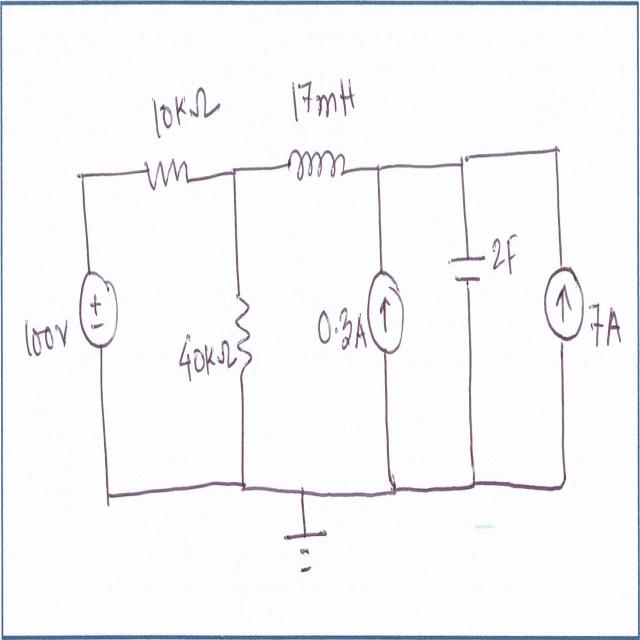 10KΩ
17mH
100V
40KΩ
0.3A
2F
7A